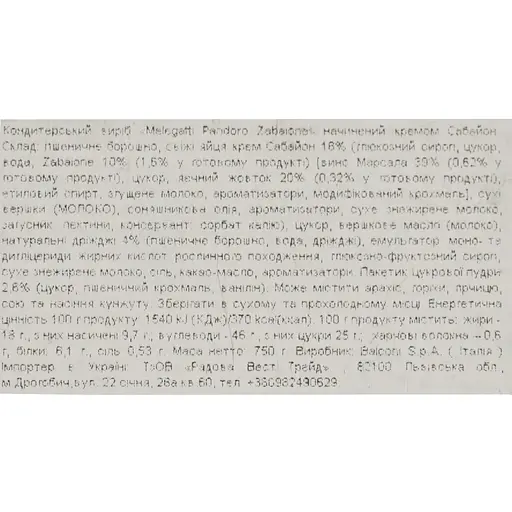 Кондитерський виріб «Melegatti Pandoro Zabaione» начинений кремом Сабайон.
Склад: пшеничне борошно, свіжі яйця крем Сабайон 16% (глюкозний сироп, цукор,
вода, Zabaione 10% (1,6% у готовому продукті) [вино Марсала 39% (0,62% у
готовому продукті), цукор, яєчний жовток 20% (0,32% у готовому продукті),
етиловий спирт, згущене молоко, ароматизатори, модифікований крохмаль], сухі
вершки (МОЛОКО), соняшникова олія, ароматизатори, сухе знежирене молоко,
загусник: пектини, консервант: сорбат калію), цукор, вершкове масло (молоко),
натуральні дріжджі 4% (пшеничне борошно, вода, дріжджі), емульгатор: моно- та
дигліцериди жирних кислот рослинного походження, глюкозно-фруктозний сироп,
сухе знежирене молоко, сіль, какао-масло, ароматизатори. Пакетик цукрової пудри
2,6% (цукор, пшеничний крохмаль, ванілін). Може містити арахіс, горіхи, гірчицю,
сою та насіння кунжуту. Зберігати в сухому та прохолодному місці. Енергетична
цінність 100 г продукту: 1540 kJ (КДж)/370 kcal(ккал). 100 г продукту містить: жири -
18 г., з них насичені 9,7 г., вуглеводи - 46 г., з них цукри 25 г., харчові волокна – 0,6
г, білки: 6,1 г., сіль 0,53 г. Маса нетто: 750 г. Виробник: Balconi S.p.A. ( Італія )
Імпортер в Україні: ТзОВ «Радова Вест Трейд» , 82100 Львівська обл.,
м.Дрогобич,вул. 22 січня, 26а кв.60, тел. +380982490629